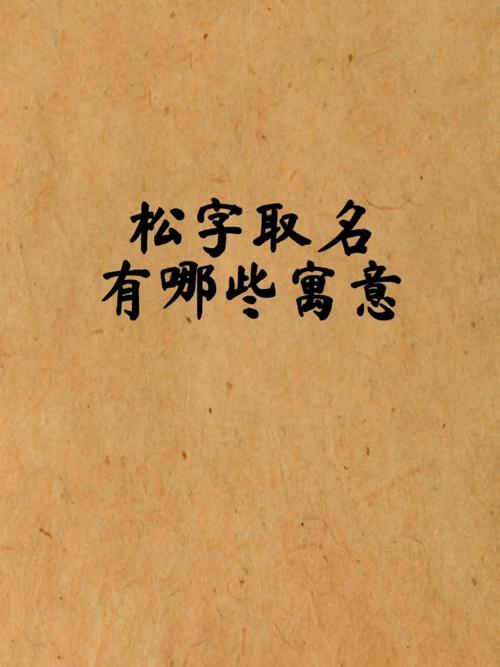 松字取名
有哪些寓意